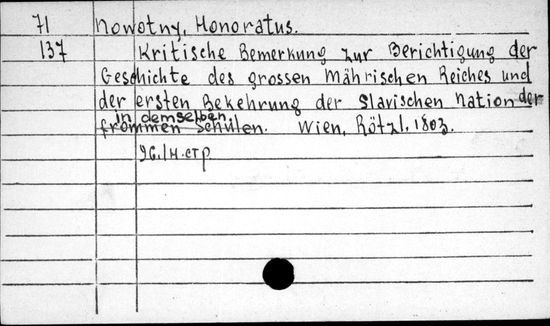 71 Nowotny, Honoratus.
137 Kritische Bemerkung zur Berichtigung der
Geschichte des grossen Mährischen Reiches und
der ersten Bekehrung der Slavischen Nation der
in demselben
frommen Schulen. Wien, Rötzl, 1803.
96./н.стр